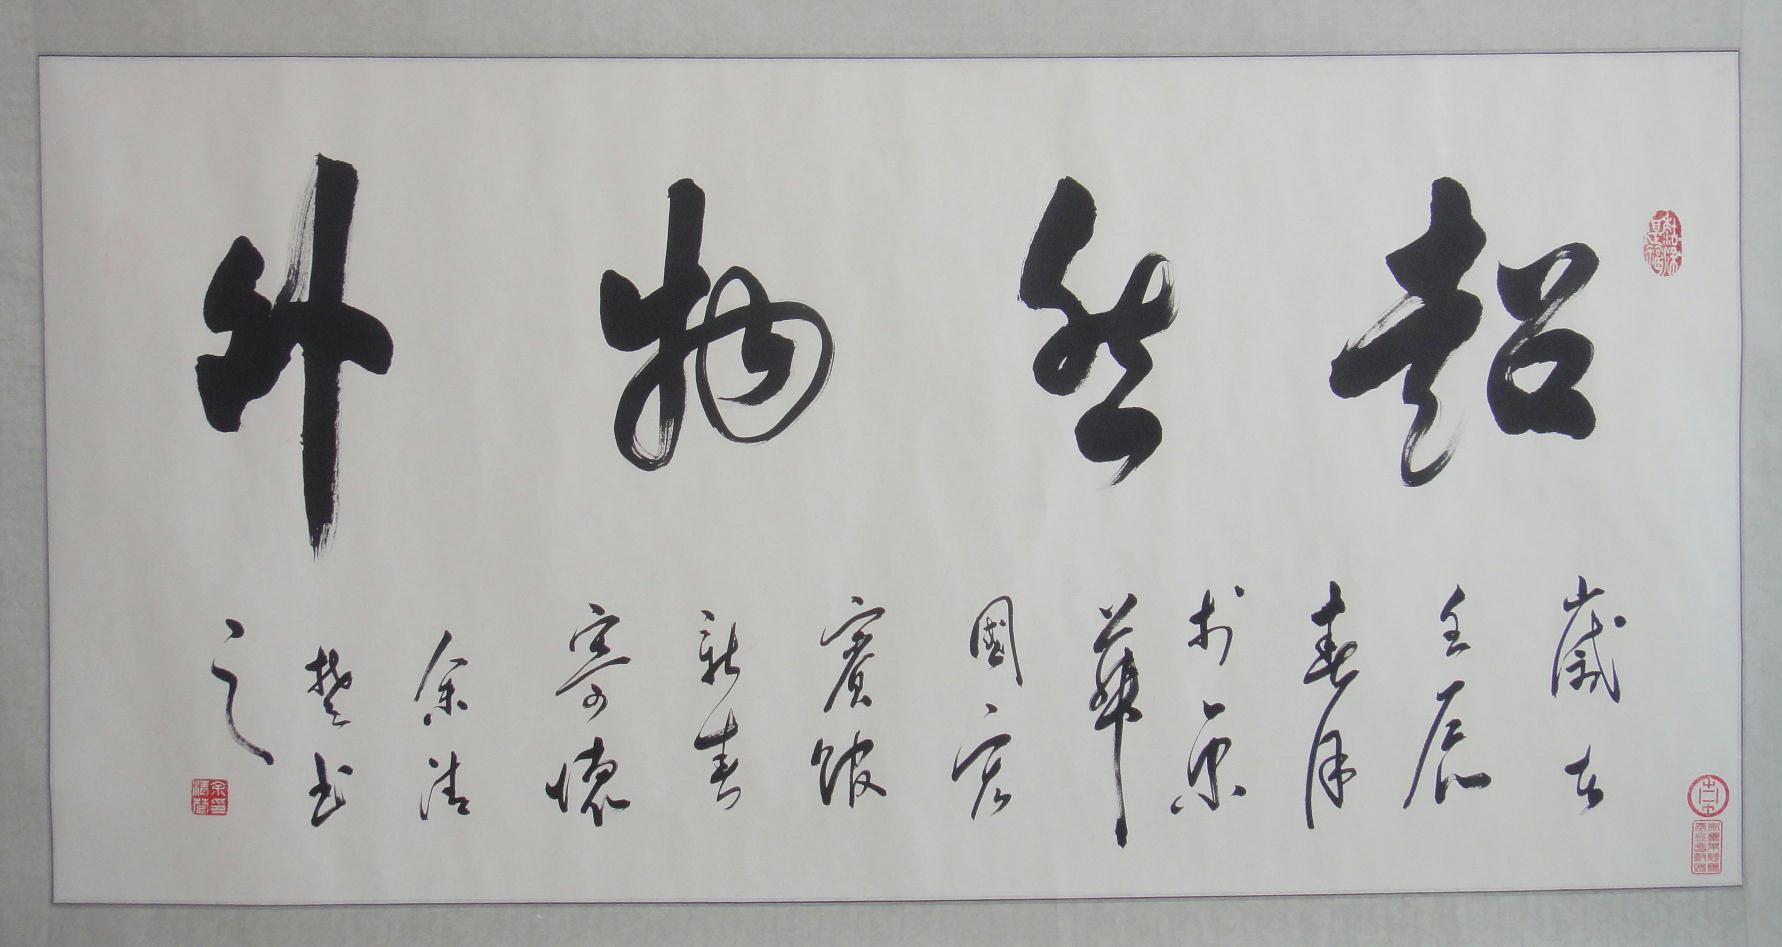 超然物外
歲在
壬辰
春月
於京
華
國宏
賓館
新春
寄懷
余清
楚書
之